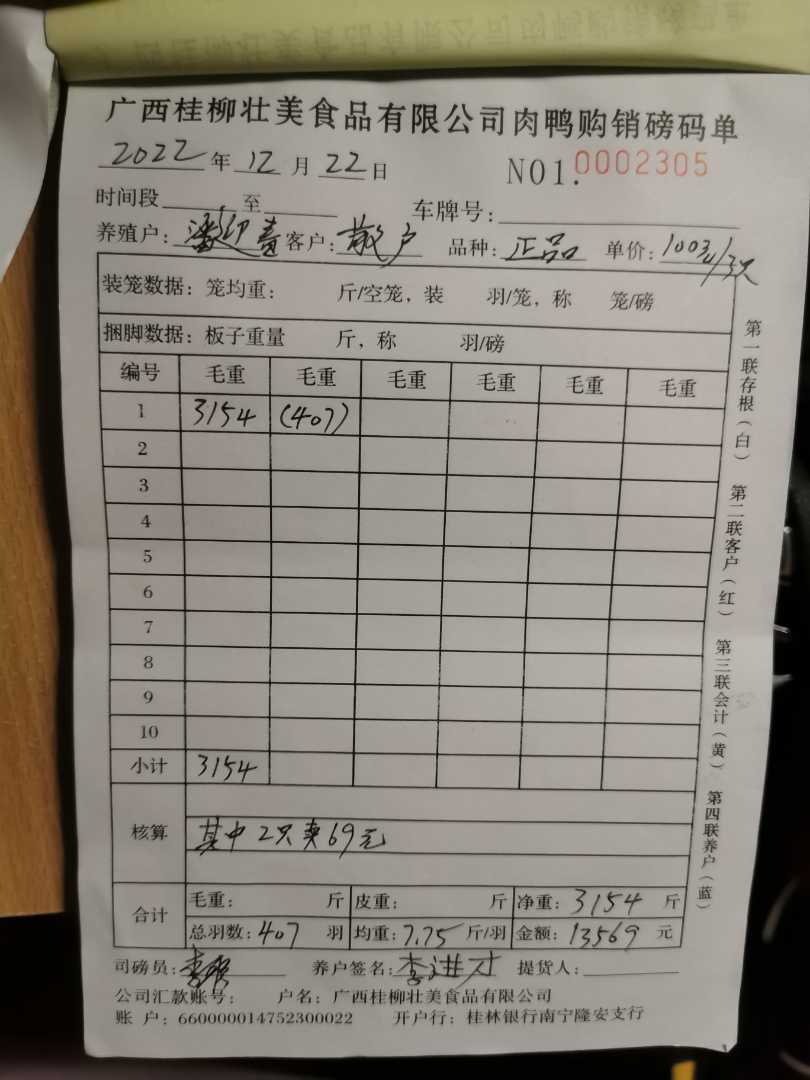 广西桂柳壮美食品有限公司肉鸭购销磅码单
2022年12月22日 NO1.0002305
时间段 至 车牌号:
养殖户: 客户:散户 品种:正品 单价:100元/3只
装笼数据: 笼均重: 斤/空笼, 装 羽/笼, 称 笼/磅
捆脚数据: 板子重量 斤, 称 羽/磅
编号 毛重 毛重 毛重 毛重 毛重 毛重
1 3154 (407)
2
3
4
5
6
7
8
9
10
小计 3154
核算 其中2只卖69元
合计 毛重: 斤 皮重: 斤 净重: 3154 斤
总羽数: 407 羽 均重: 7.75 斤/羽 金额: 13569 元
司磅员: 养户签名: 李进才 提货人:
公司汇款账号: 户名: 广西桂柳壮美食品有限公司
账 户: 660000014752300022 开户行: 桂林银行南宁隆安支行
第一联存根(白) 第二联客户(红) 第三联会计(黄) 第四联养户(蓝)